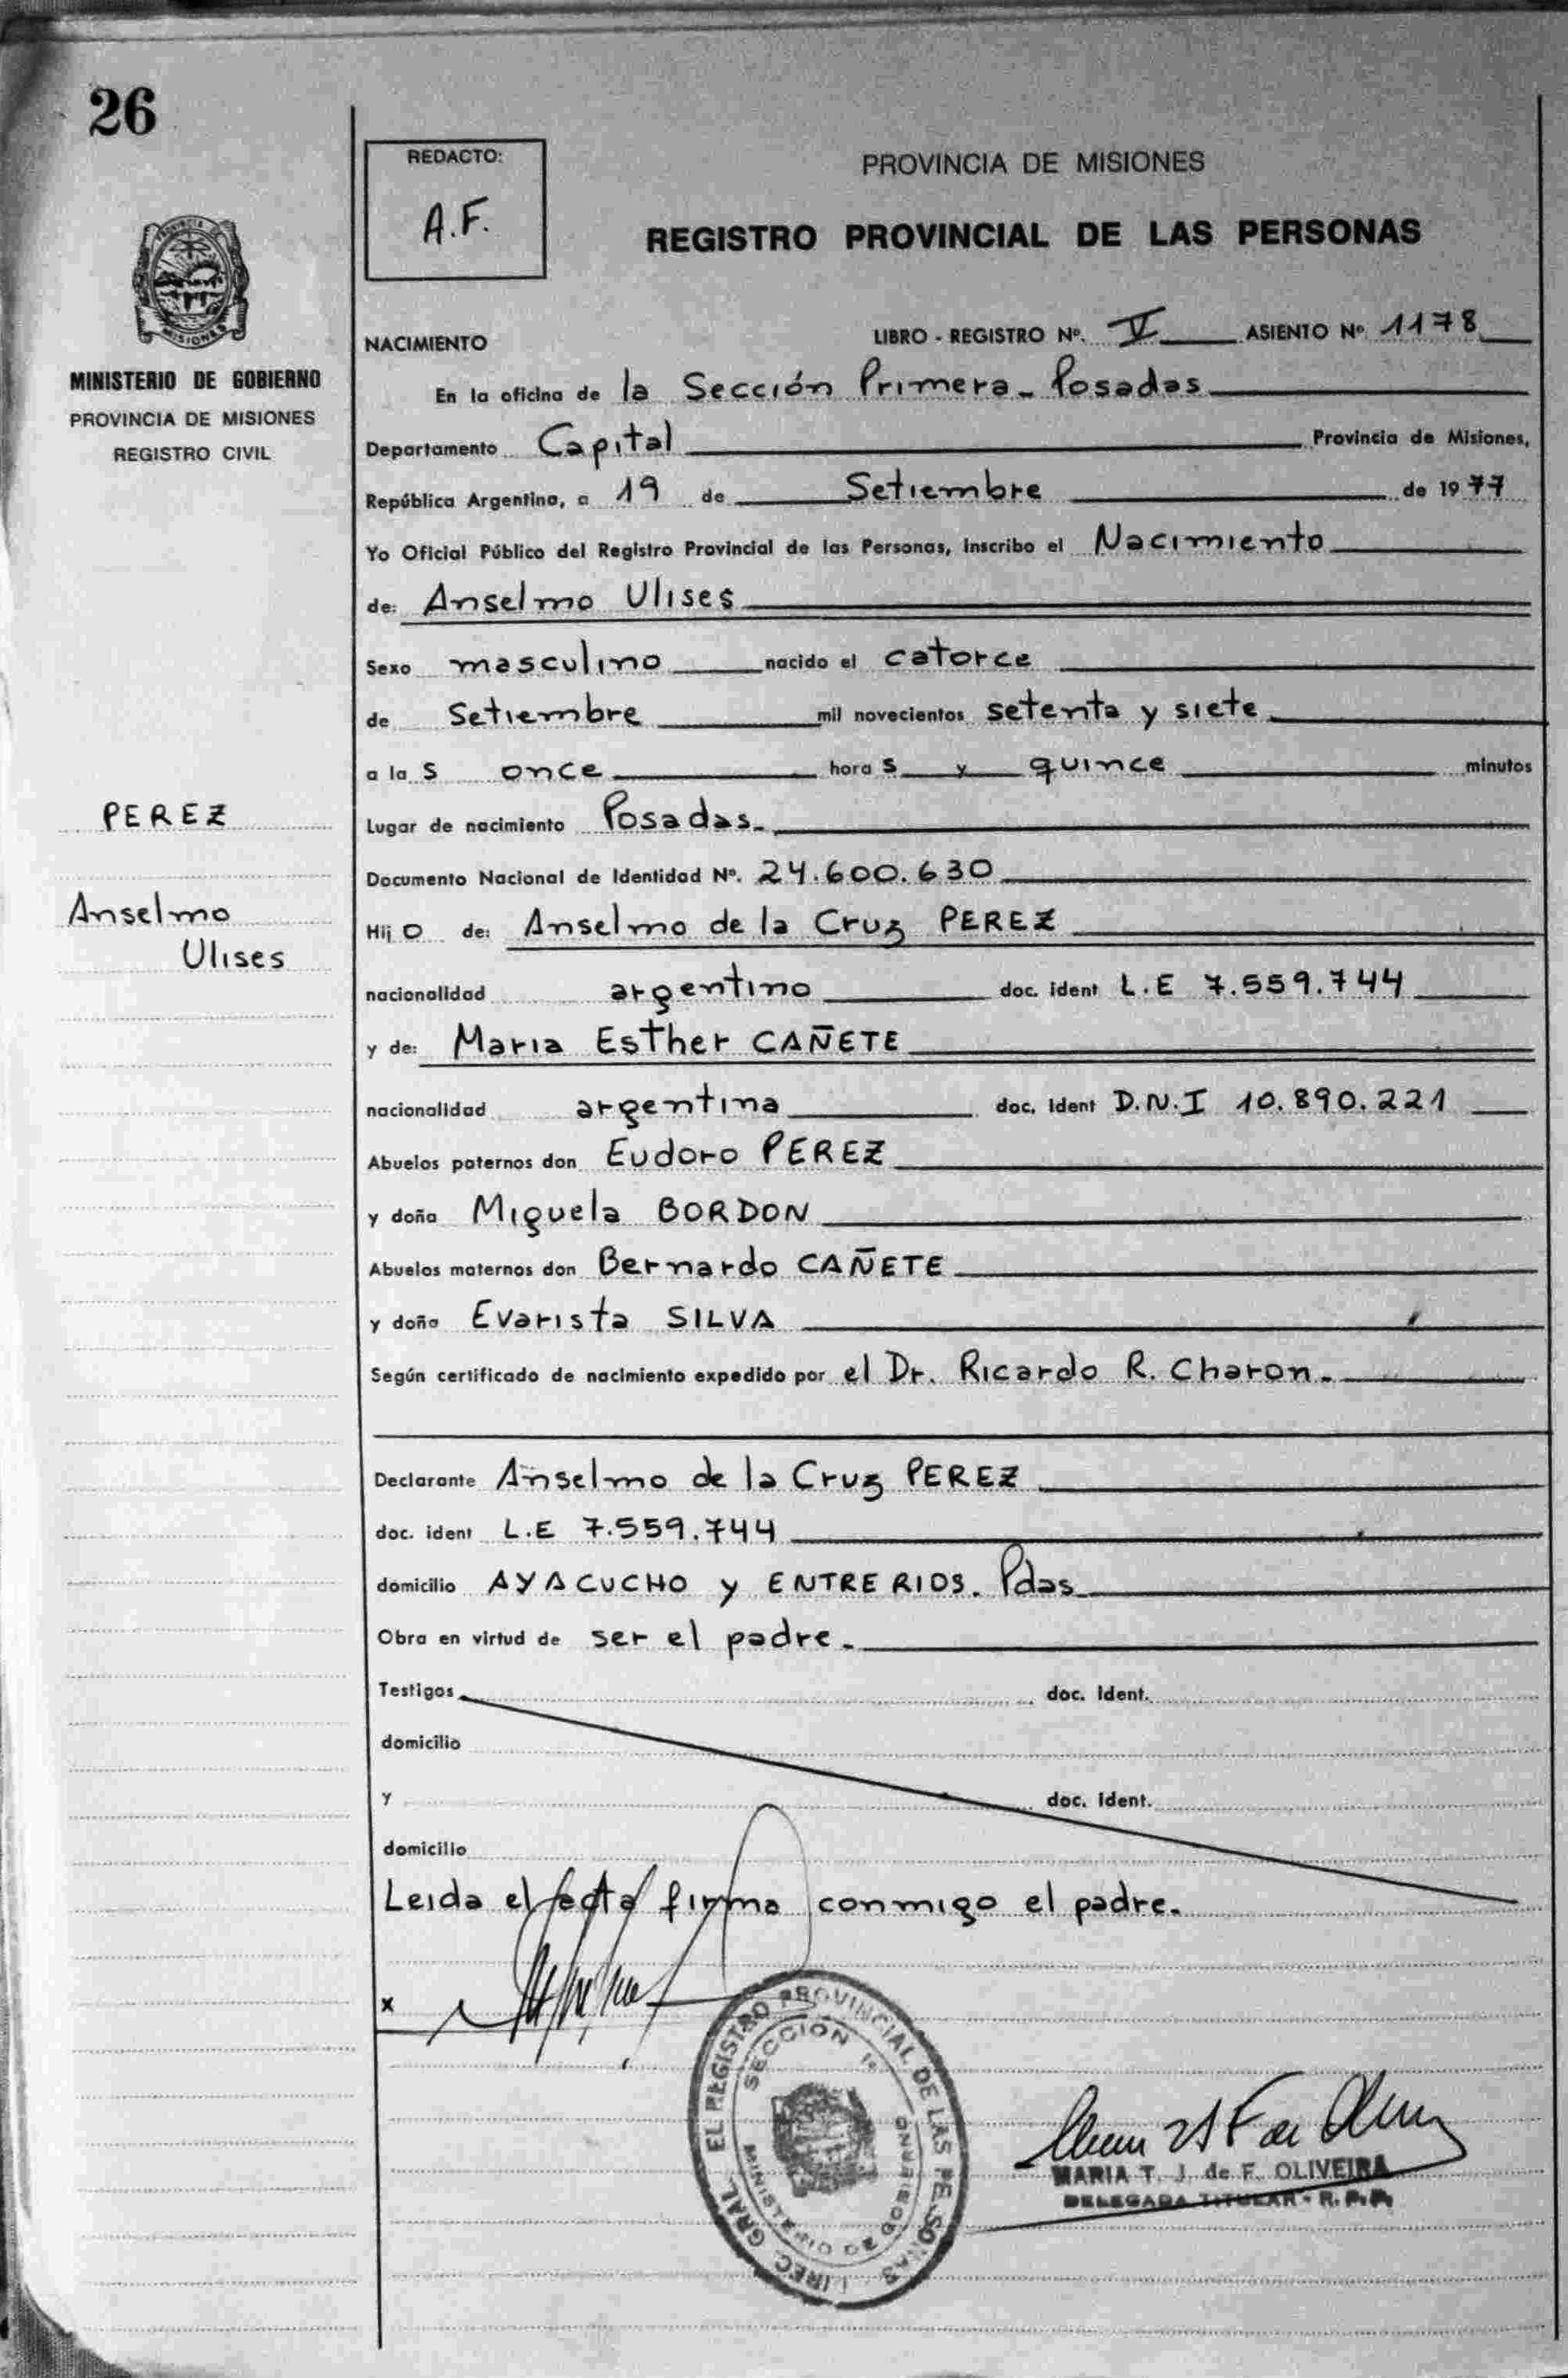 26
REDACTO:
A.F.
PROVINCIA DE MISIONES
REGISTRO PROVINCIAL DE LAS PERSONAS
MISIONES
MINISTERIO DE GOBIERNO
PROVINCIA DE MISIONES
REGISTRO CIVIL
NACIMIENTO LIBRO - REGISTRO Nº. V ASIENTO Nº 1178
En la oficina de la Sección Primera - Posadas
Departamento Capital Provincia de Misiones,
República Argentina, a 19 de Setiembre de 1977
Yo Oficial Público del Registro Provincial de las Personas, inscribo el Nacimiento
de: Anselmo Ulises
Sexo masculino nacido el catorce
de Setiembre mil novecientos setenta y siete
a la s once hora s y quince minutos
PEREZ
Lugar de nacimiento Posadas.-
Documento Nacional de Identidad Nº. 24.600.630
Anselmo
Ulises
Hij o de: Anselmo de la Cruz PEREZ
nacionalidad argentino doc. ident L.E 7.559.744
y de: Maria Esther CAÑETE
nacionalidad argentina doc. ident D.N.I 10.890.221
Abuelos paternos don Eudoro PEREZ
y doña Miguela BORDON
Abuelos maternos don Bernardo CAÑETE
y doña Evarista SILVA
Según certificado de nacimiento expedido por el Dr. Ricardo R. Charon.-
Declarante Anselmo de la Cruz PEREZ
doc. ident L.E 7.559.744
domicilio AYACUCHO y ENTRE RIOS. Pdas
Obra en virtud de ser el padre.-
Testigos doc. ident.
domicilio
y doc. ident.
domicilio
Leida el acta firma conmigo el padre.-
x
DIREC. GRAL. EL REGISTRO PROVINCIAL DE LAS PERSONAS
SECCION 1a
MINISTERIO DE GOBIERNO
MARIA T. J. de F. OLIVEIRA
DELEGADA TITULAR - R. P. P.